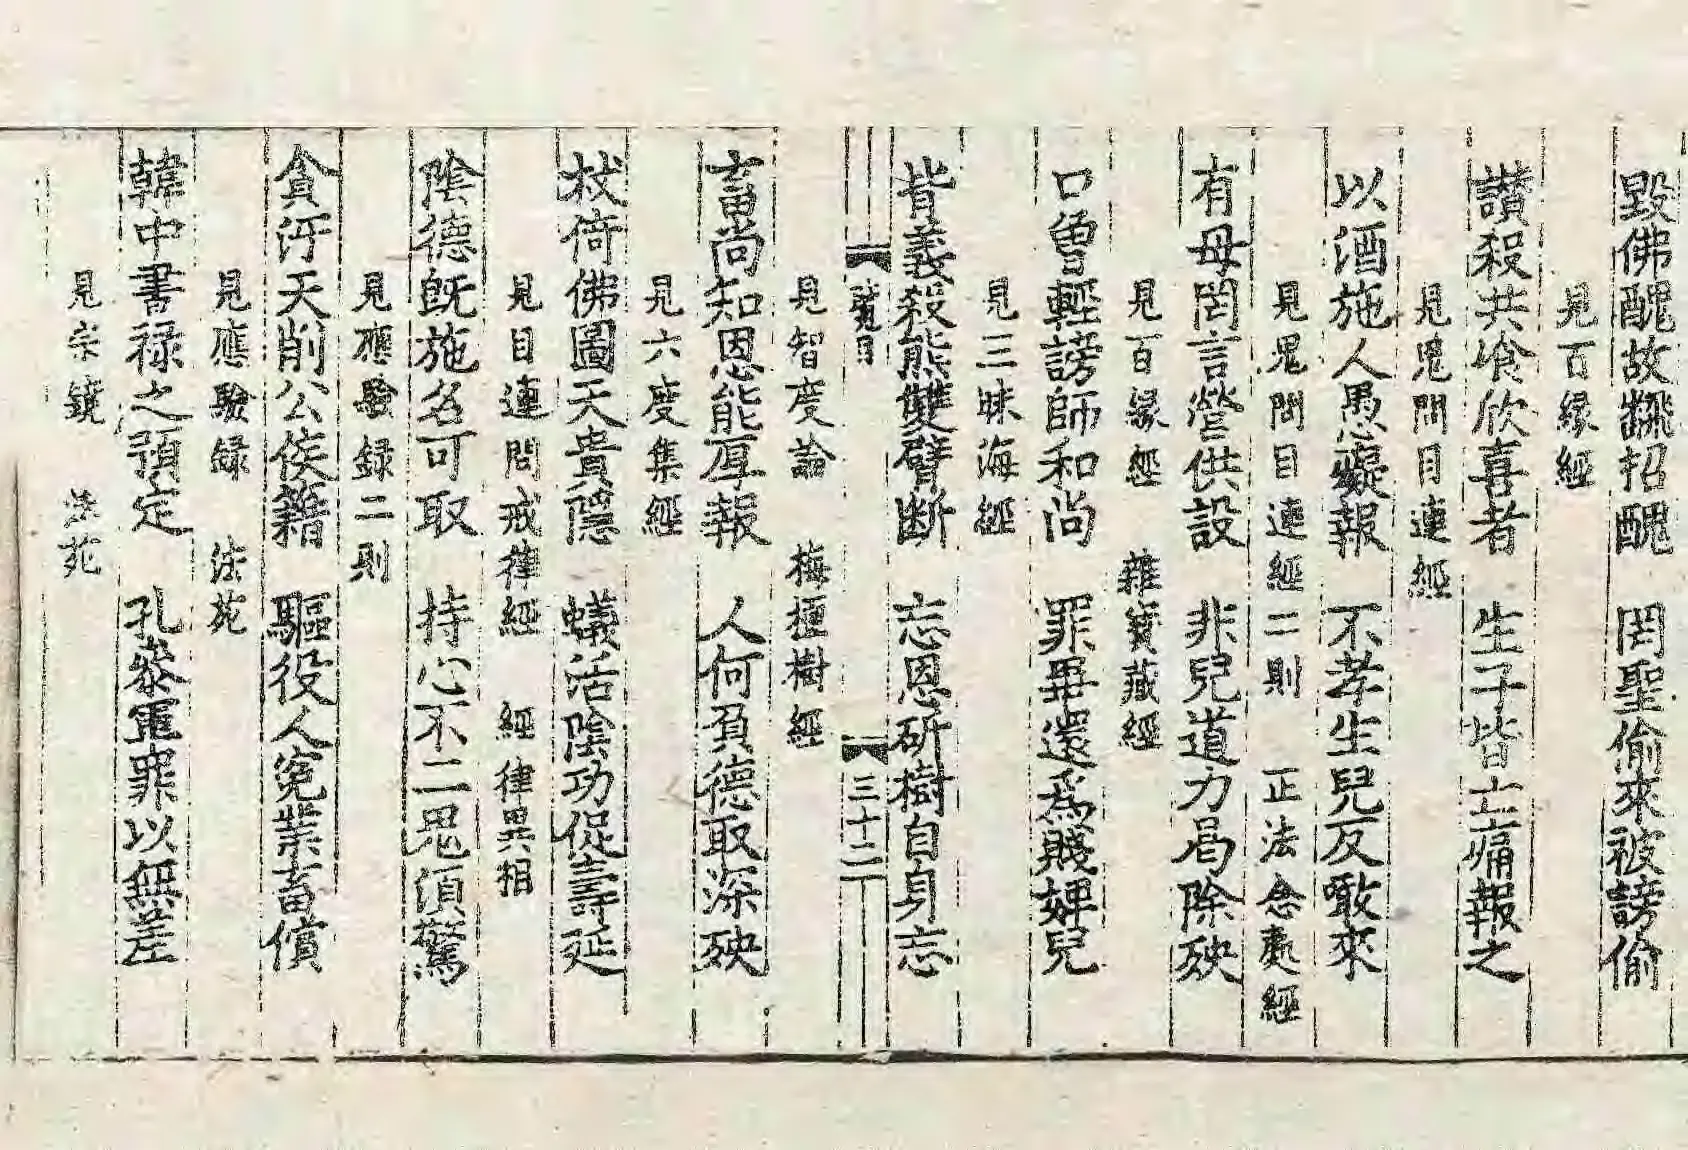 毀佛醜故飜招醜　罔聖偷來被謗偷
見百緣經
讃殺共飡欣喜者　生子皆亡痛報之
見鬼問目連經
以酒施人愚癡報　不孝生兒反噉來
見鬼問目連經二則　正法念處經
有母罔言營供設　非兒道力曷除殃
見百緣經　雜寶藏經
口曾輕謗師和尚　罪畢還爲賤婢兒
見三昧海經
背義殺熊雙臂断　忘恩斫樹自身忘
三十二
見智度論　梅檀樹經
畜尚知恩能厚報　人何負德取深殃
見六度集經
杖倚佛圖天貴隱　蟻活陰功促壽延
見目連問戒律經　經律異相
陰德旣施名可取　持心不二鬼須驚
見應驗録二則
貪汙天削公侯籍　驅役人寃業畜償
見應驗録　法苑
韓中書禄之預定　孔叅軍罪以無差
見宗鏡　法苑